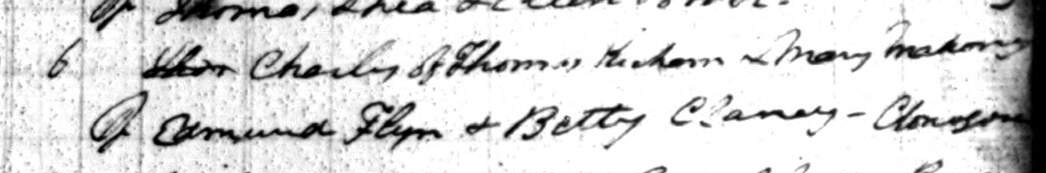 Thomas Shea &
6 Charles of Thomas Kickham & Mary Mahony
Edmund Flyn & Betty Clancy - Clonagoose